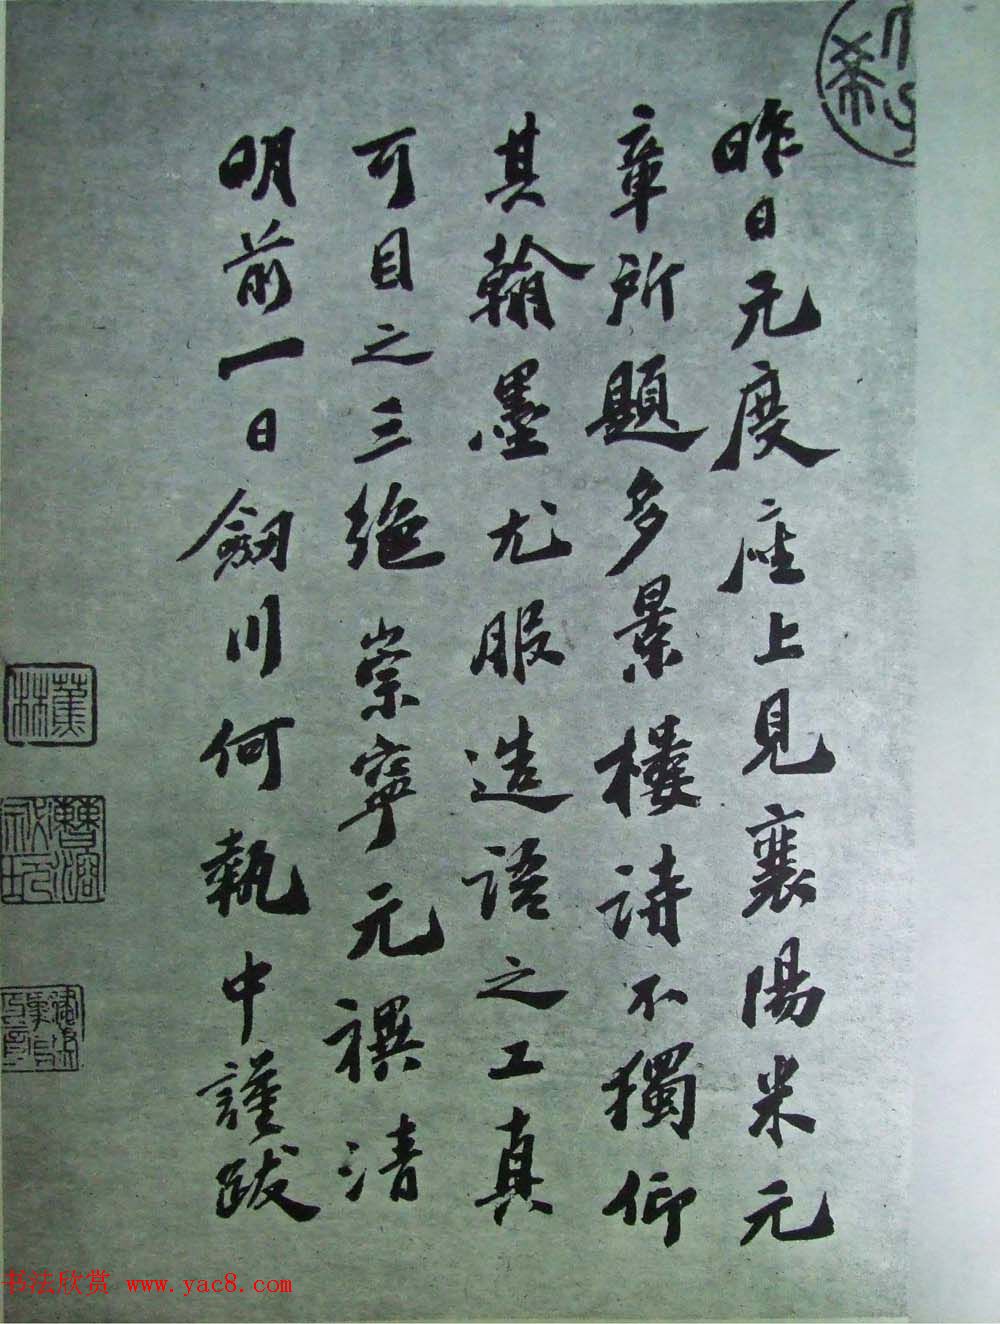 昨日元度座上見襄陽米元
章所題多景樓詩不獨仰
其翰墨尤服造語之工真
可目之三絶崇寧元禩清
明前一日劒川何執中謹跋
蕉林
書法欣赏 www.yac8.com